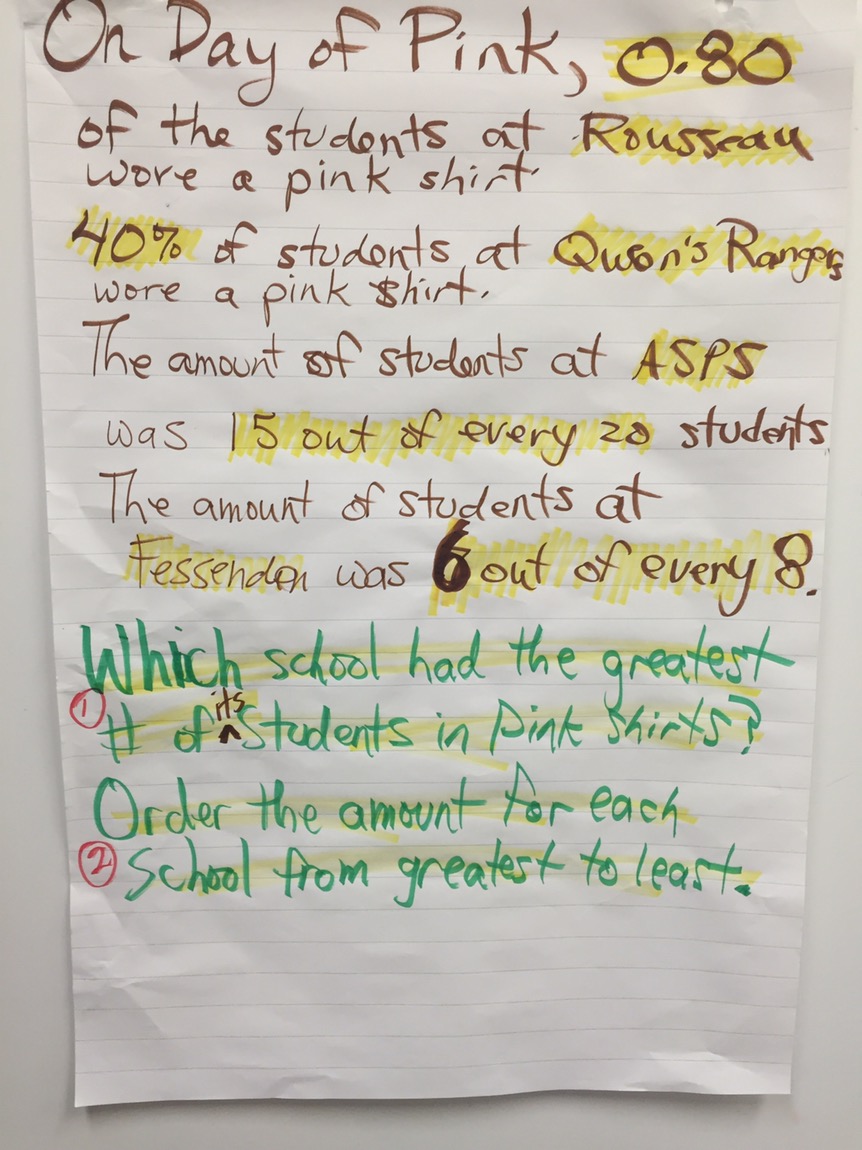 On Day of Pink, 0.80
of the students at Rousseau
wore a pink shirt.
40% of students at Qwon's Rangers
wore a pink shirt.
The amount of students at ASPS
was 15 out of every 20 students
The amount of students at
Fessenden was 6 out of every 8.
Which school had the greatest
① # of its students in pink shirts?
Order the amount for each
② School from greatest to least.